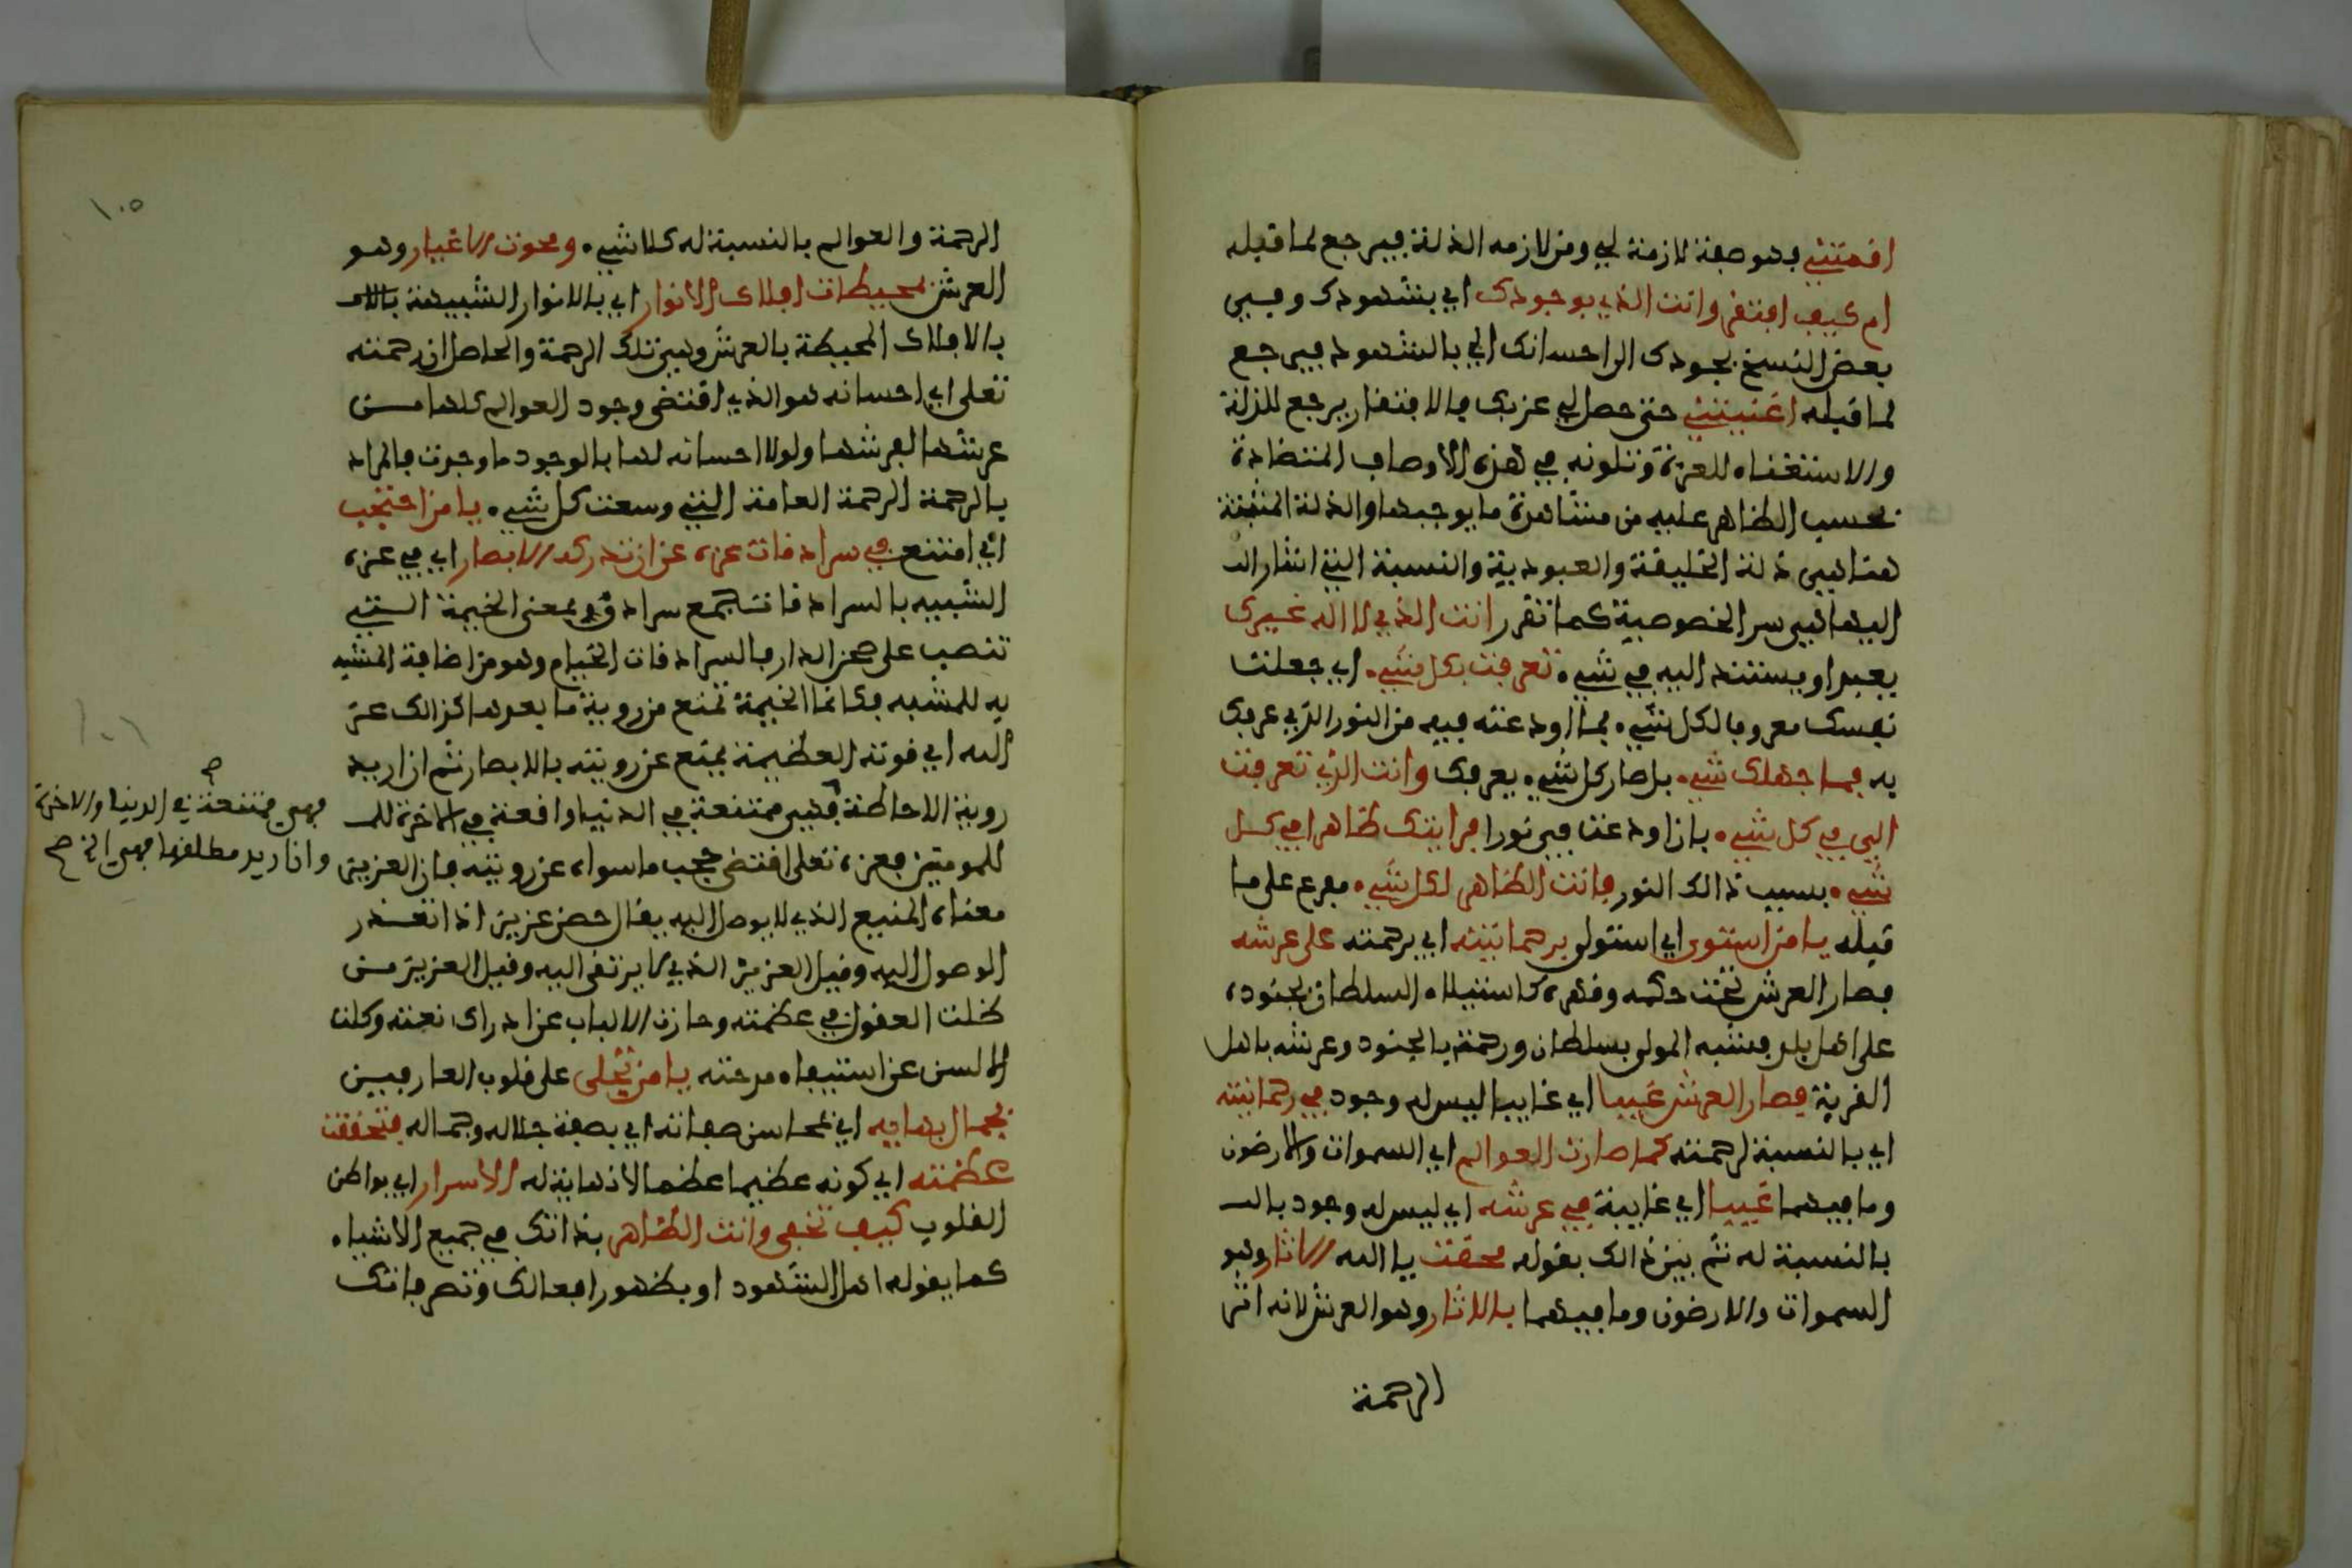 اقمتني وهو صفة لازمة لي ومن لازمه الذلة فيرجع لما قبله
ام كيف افتقر وانت الذي بوجودك اي بشهودك وفي
بعض النسخ بجودك اي احسانك الي بالشهود فيرجع
لما قبله اغنيتني حتى حصل لي عز بك فالافتقار يرجع للذلة
والاستغناء للعزة وتلونه في هذه الاوصاف المتضادة
بحسب الظاهر عليه من مشاهدة ما يوجبها والذلة المثبتة
هنا هي ذلة الخليقة والعبودية والنسبة التي اشار الـ
اليها هي سر الخصوصية كما تقرر انت الذي لا اله غيرك
يعبد او يستند اليه في شيء تعرفت بكل شيء اي جعلت
نفسك معروفا لكل شيء بما اودعته فيه من النور الذي عرفك
به فما جهلك شيء بل صار كل شيء يعرفك وانت الذي تعرفت
الي في كل شيء بان اودعت في نورا فرايتك ظاهرا في كل
شيء بسبب ذالك النور فانت الظاهر لكل شيء مفرع على ما
قبله يا من استوى اي استولى برحمانيته اي برحمته على عرشه
فصار العرش تحت حكمه وقهره كاستيلاء السلطان بجنوده
على اهل بلد فشبه المولى بسلطان ورحمته بالجنود وعرشه باهل
القرية فصار العرش غيبا اي غايبا ليس له وجود في رحمانيته
اي بالنسبة لرحمته كما صارت العوالم اي السموات والارضون
وما فيهما غيبا اي غايبة في عرشه اي ليس له وجود بالـ
بالنسبة له ثم بين ذالك بقوله محقت يا الله الاثار وهو
السموات والارضون وما فيهما بالاثار وهو العرش لانه اثر
الرحمة
١٠٥
الرحمة والعوالم بالنسبة له كلا شيء ومحوت الاغيار وهو
العرش بمحيطات افلاك الانوار اي بالانوار الشبيهة
بالافلاك المحيطة بالعرش وهي تلك الرحمة والحاصل ان رحمته
تعلى اي احسانه هو الذي اقتضى وجود العوالم كلها من
عرشها لفرشها ولولا احسانه لها بالوجود ما وجدت فالمراد
بالرحمة الرحمة العامة التي وسعت كل شيء يا من احتجب
اي امتنع في سرادقات عزه عن ان تدركه الابصار اي في عزه
الشبيه بالسرادقات جمع سرادق بمعنى الخيمة التي
تنصب على صحن الدار فالسرادقات الخيام وهو من اضافة المشبه
به للمشبه فكما ان الخيمة تمنع من روية ما بعدها كذالك عز
الله اي قوته العظيمة يمنع عن رويته بالابصار ثم ان اريد
روية الاحاطة فهي ممتنعة في الدنيا واقعة في الاخرة للـ
للمومنين فعزه تعلى اقتضى حجب ما سواه عن رويته فان العزيز
معناه المنيع الذي لا يوصل اليه يقال حصن عزيز اذا تعذر
الوصول اليه وقيل العزيز الذي لا يرتقى اليه وقيل العزيز من
ضلت العقول في عظمته وحارت الالباب عن ادراك نعته وكلت
الالسن عن استيفاء مدحته يا من تجلى على قلوب العارفين
بجمال بهاءيه اي بمحاسن صفاته اي بصفة جلاله وجماله فتحققت
عظمته اي كونه عظيما عظما لا نهاية له الاسرار اي بواطن
القلوب كيف تخفى وانت الظاهر بذاتك في جميع الاشياء
كما يقوله اهل الشهود او بظهور افعالك وتصرفاتك
١٠٦
صح
فهي ممتنعة في الدنيا والاخرة
وان اريد مطلقها فهي الخ صح